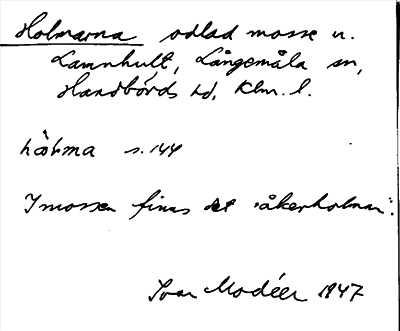 Holmarna odlad mosse u.
Lamnhult, Långemåla sn,
Handbörds hd, Klm. l.
s. 144
I mossen finns det "åkerholmar".
Ivar Modéer 1947